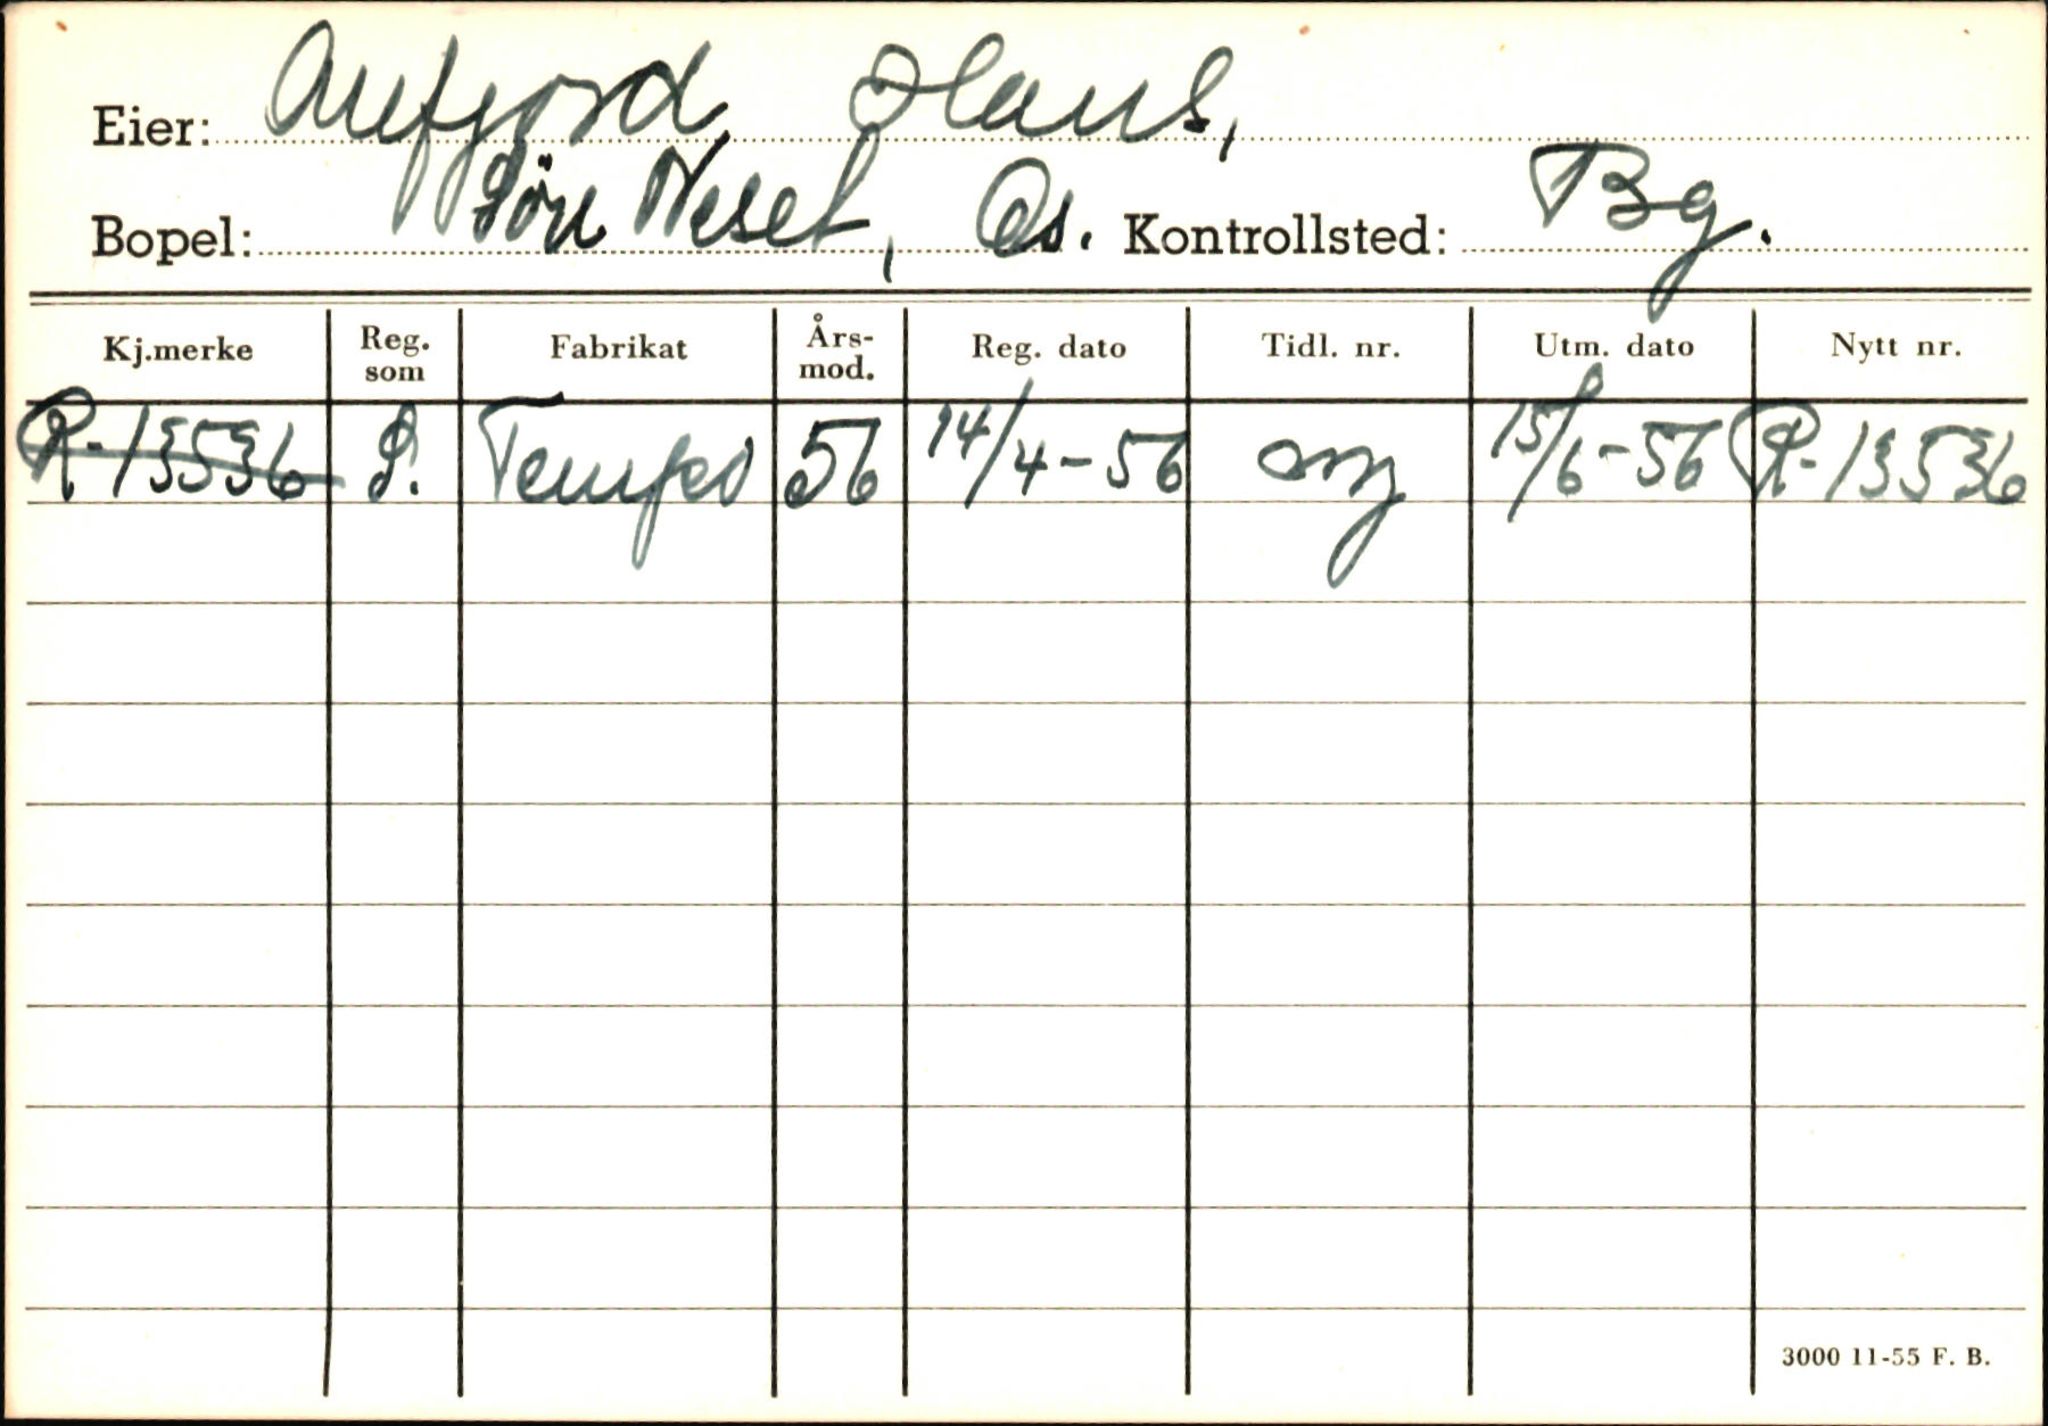 Eier: Aufjord, Hans,
Bopel: Sör Neset, Os. Kontrollsted: Bg.
Kj.merke Reg. som Fabrikat Års- mod. Reg. dato Tidl. nr. Utm. dato Nytt nr.
R-13536 S. Tempo 56 14/4-56 ny 15/6-56 R-13536
3000 11-55 F. B.